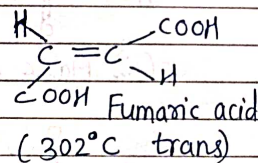 H COOH
C=C
COOH H
Fumaric acid
(302°C trans)